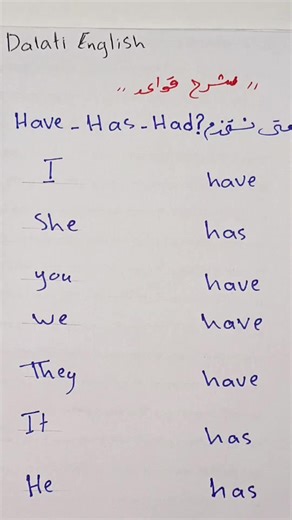 Dalati English
,, شرح قواعد ,,
Have - Has - Had? متى نستخدم
I have
She has
you have
we have
They have
It has
He has